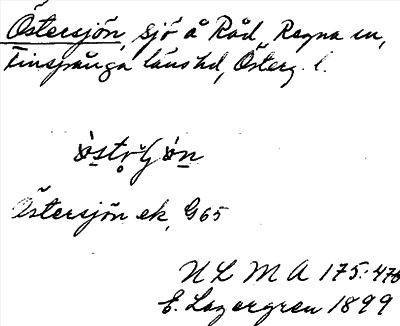 Östersjön, sjö å Råd, Regna sn,
Finspånga länshd, Österg. l.
Östersjön ek. G65
ULMA 175:476
E. Lagergren 1899